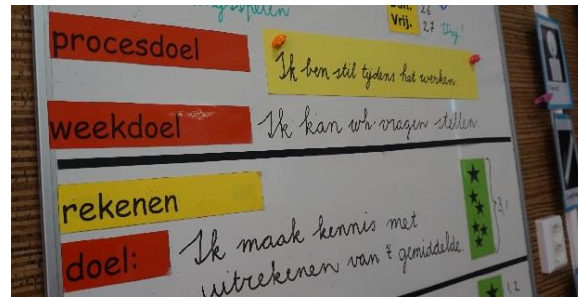 spelen
26
Vrij. 27 Vrij!
procesdoel
Ik ben stil tijdens het werken.
weekdoel Ik kan wh-vragen stellen.
rekenen
doel: Ik maak kennis met
uitrekenen van 't gemiddelde.
3,1
1,2